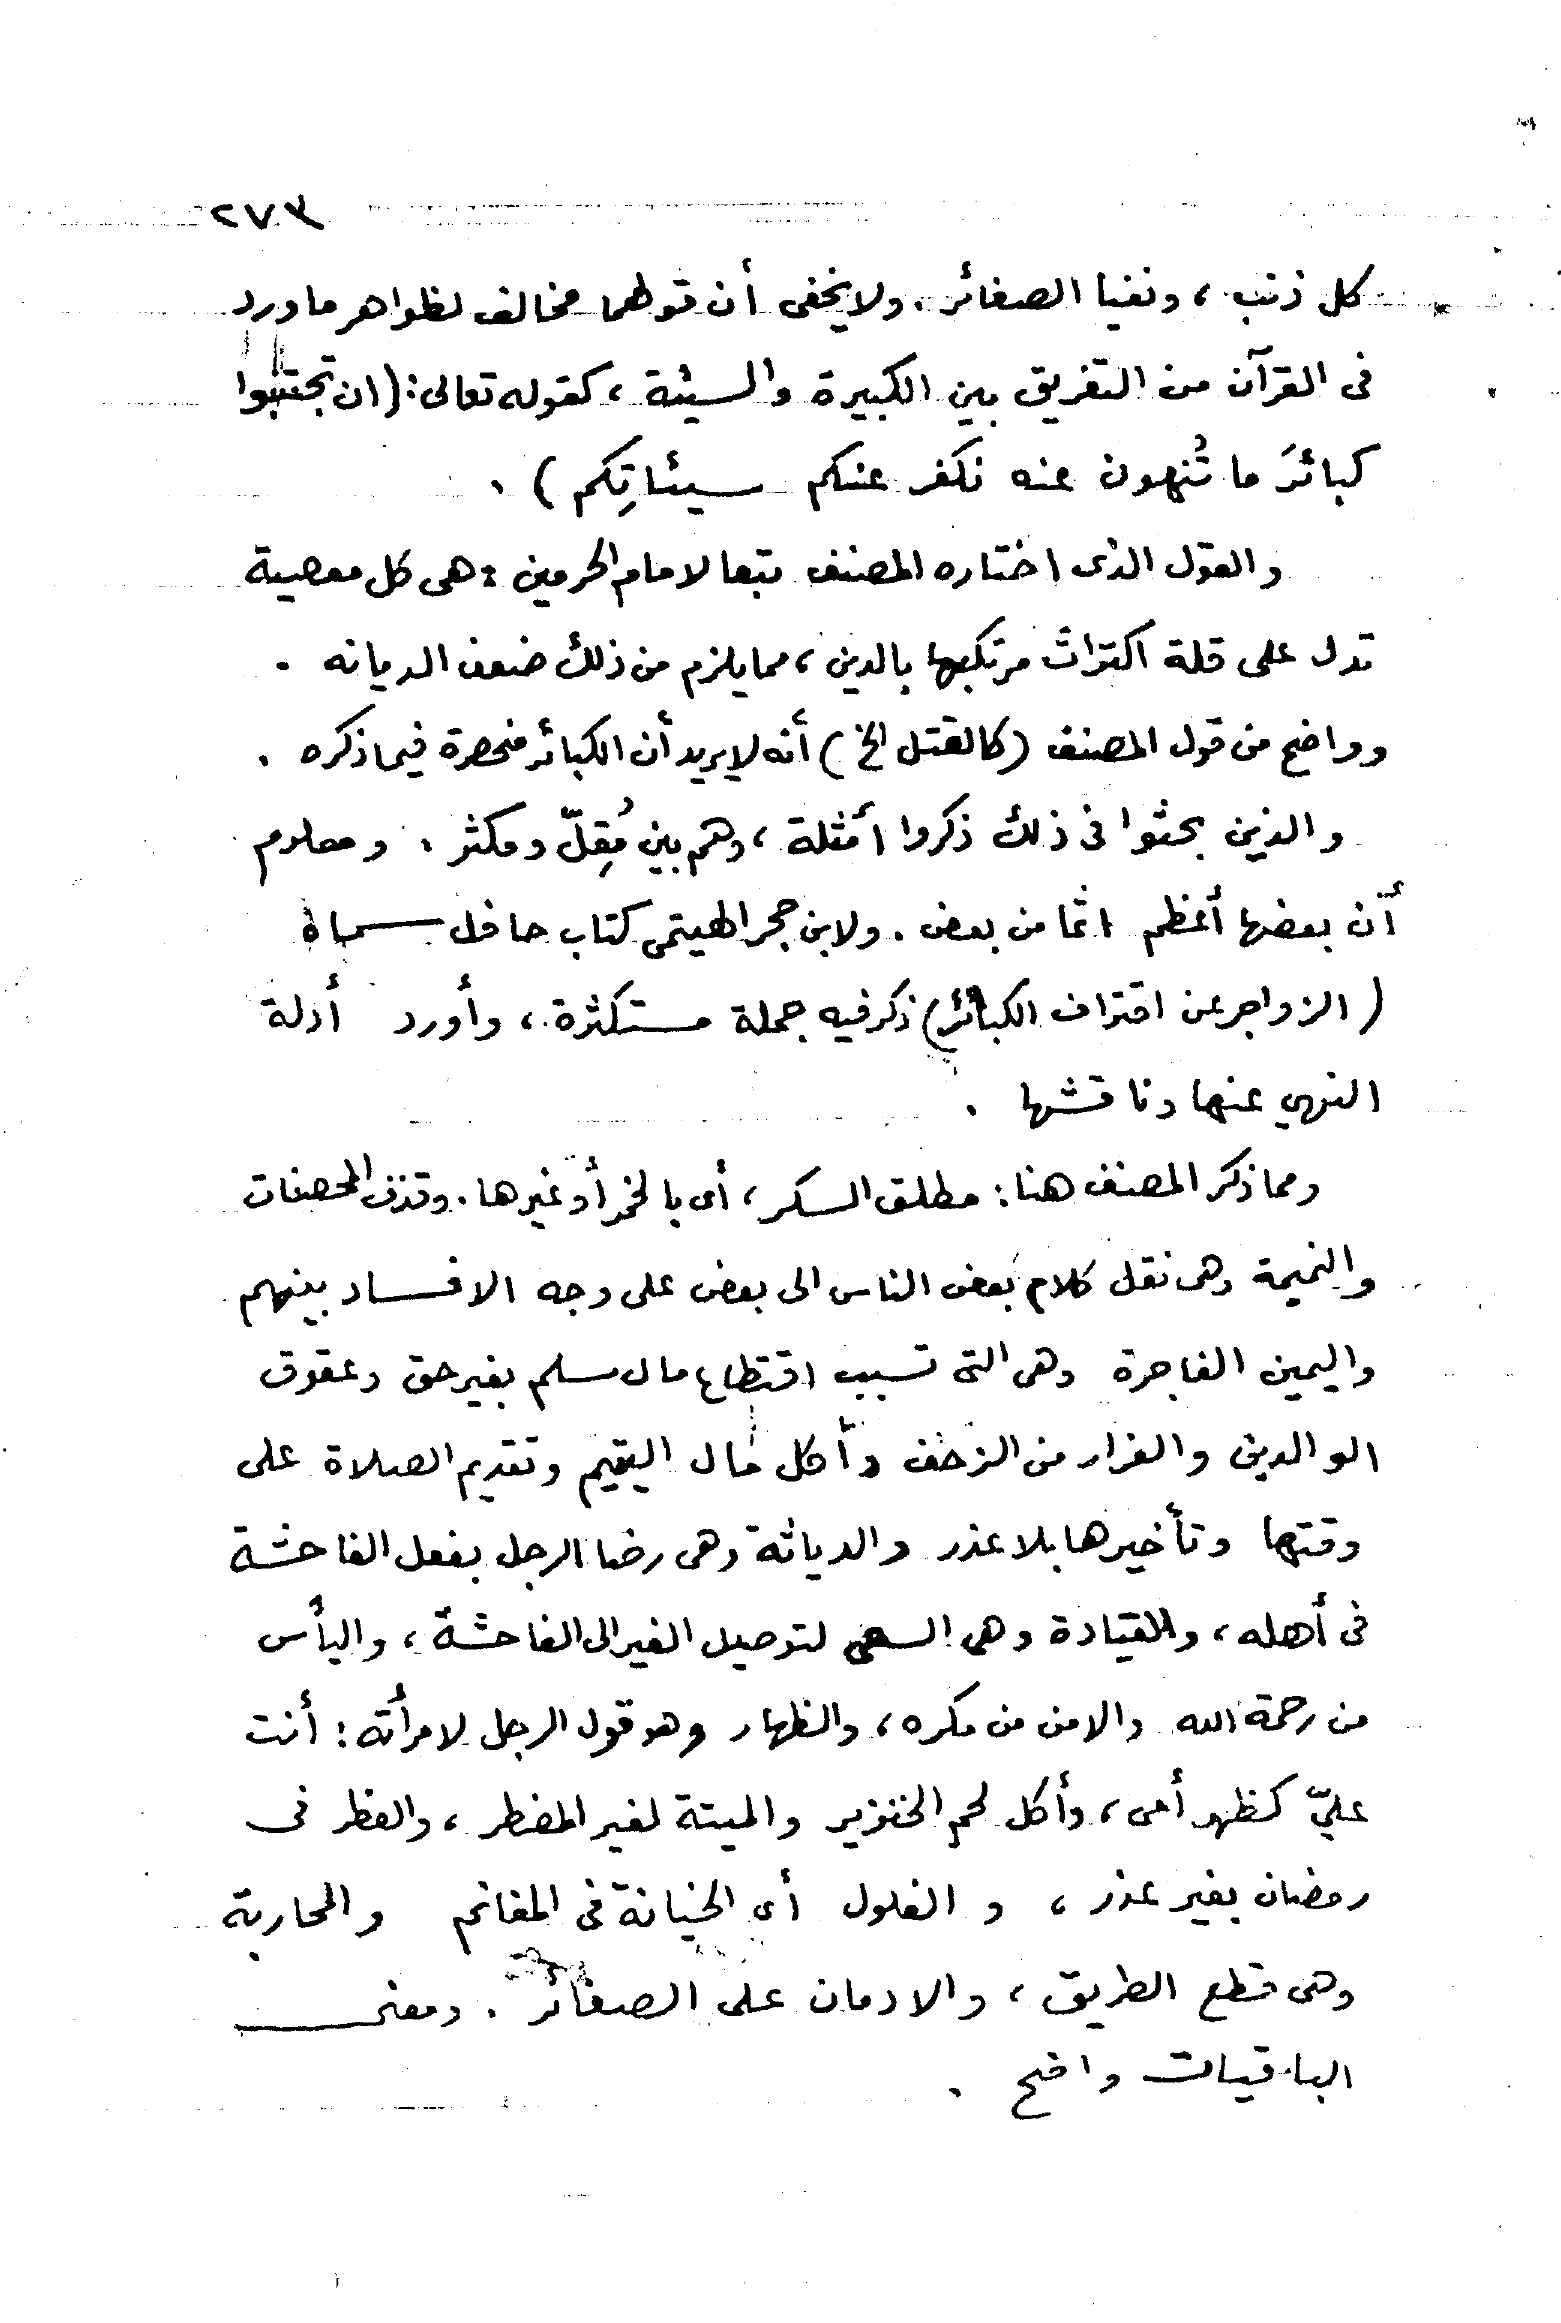 ٢٧٣
كل ذنب ، ونفيا الصغائر . ولا يخفى أن قولهما مخالف لظواهر ما ورد
فى القرآن من التفريق بين الكبيرة والسيئة ، كقوله تعالى : ( ان تجتنبوا
كبائرَ ما تُنهون عنه نكفر عنكم سيئاتِكم ) .
والقول الذى اختاره المصنف تبعا لامام الحرمين : هى كل معصية
تدل على قلة اكتراث مرتكبها بالدين ، مما يلزم من ذلك ضعف الديانه .
وواضح من قول المصنف ( كالقتل الخ ) أنه لا يريد أن الكبائر منحصرة فيما ذكره .
والذين بحثوا فى ذلك ذكروا أمثلة ، وهم بين مُقِلّ ومكثر . ومعلوم
أن بعضها أعظم اثما من بعض . ولابن حجر الهيتمى كتاب حافل سماه
( الزواجر عن اقتراف الكبائر ) ذكر فيه جملة مستكثرة ، وأورد أدلة
النهي عنها وناقشها .
ومما ذكر المصنف هنا : مطلق السكر ، أى بالخمر أو غيرها . وقذف المحصنات
والنميمة وهى نقل كلام بعض الناس الى بعض على وجه الافساد بينهم
واليمين الفاجرة وهى التى تسبب اقتطاع مال مسلم بغير حق وعقوق
الوالدين والفرار من الزحف وأكل مال اليتيم وتقديم الصلاة على
وقتها وتأخيرها بلا عذر والدياثة وهى رضا الرجل بفعل الفاحشة
فى أهله ، والقيادة وهى السعى لتوصيل الغير الى الفاحشة ، واليأس
من رحمة الله والامن من مكره ، والظهار وهو قول الرجل لامرأته : أنت
عليّ كظهر أمى ، وأكل لحم الخنزير والميتة لغير المضطر ، والفطر فى
رمضان بغير عذر ، والغلول أى الخيانة فى المغانم والمحاربة
وهى قطع الطريق ، والادمان على الصغائر . ومعنى
الباقيات واضح .